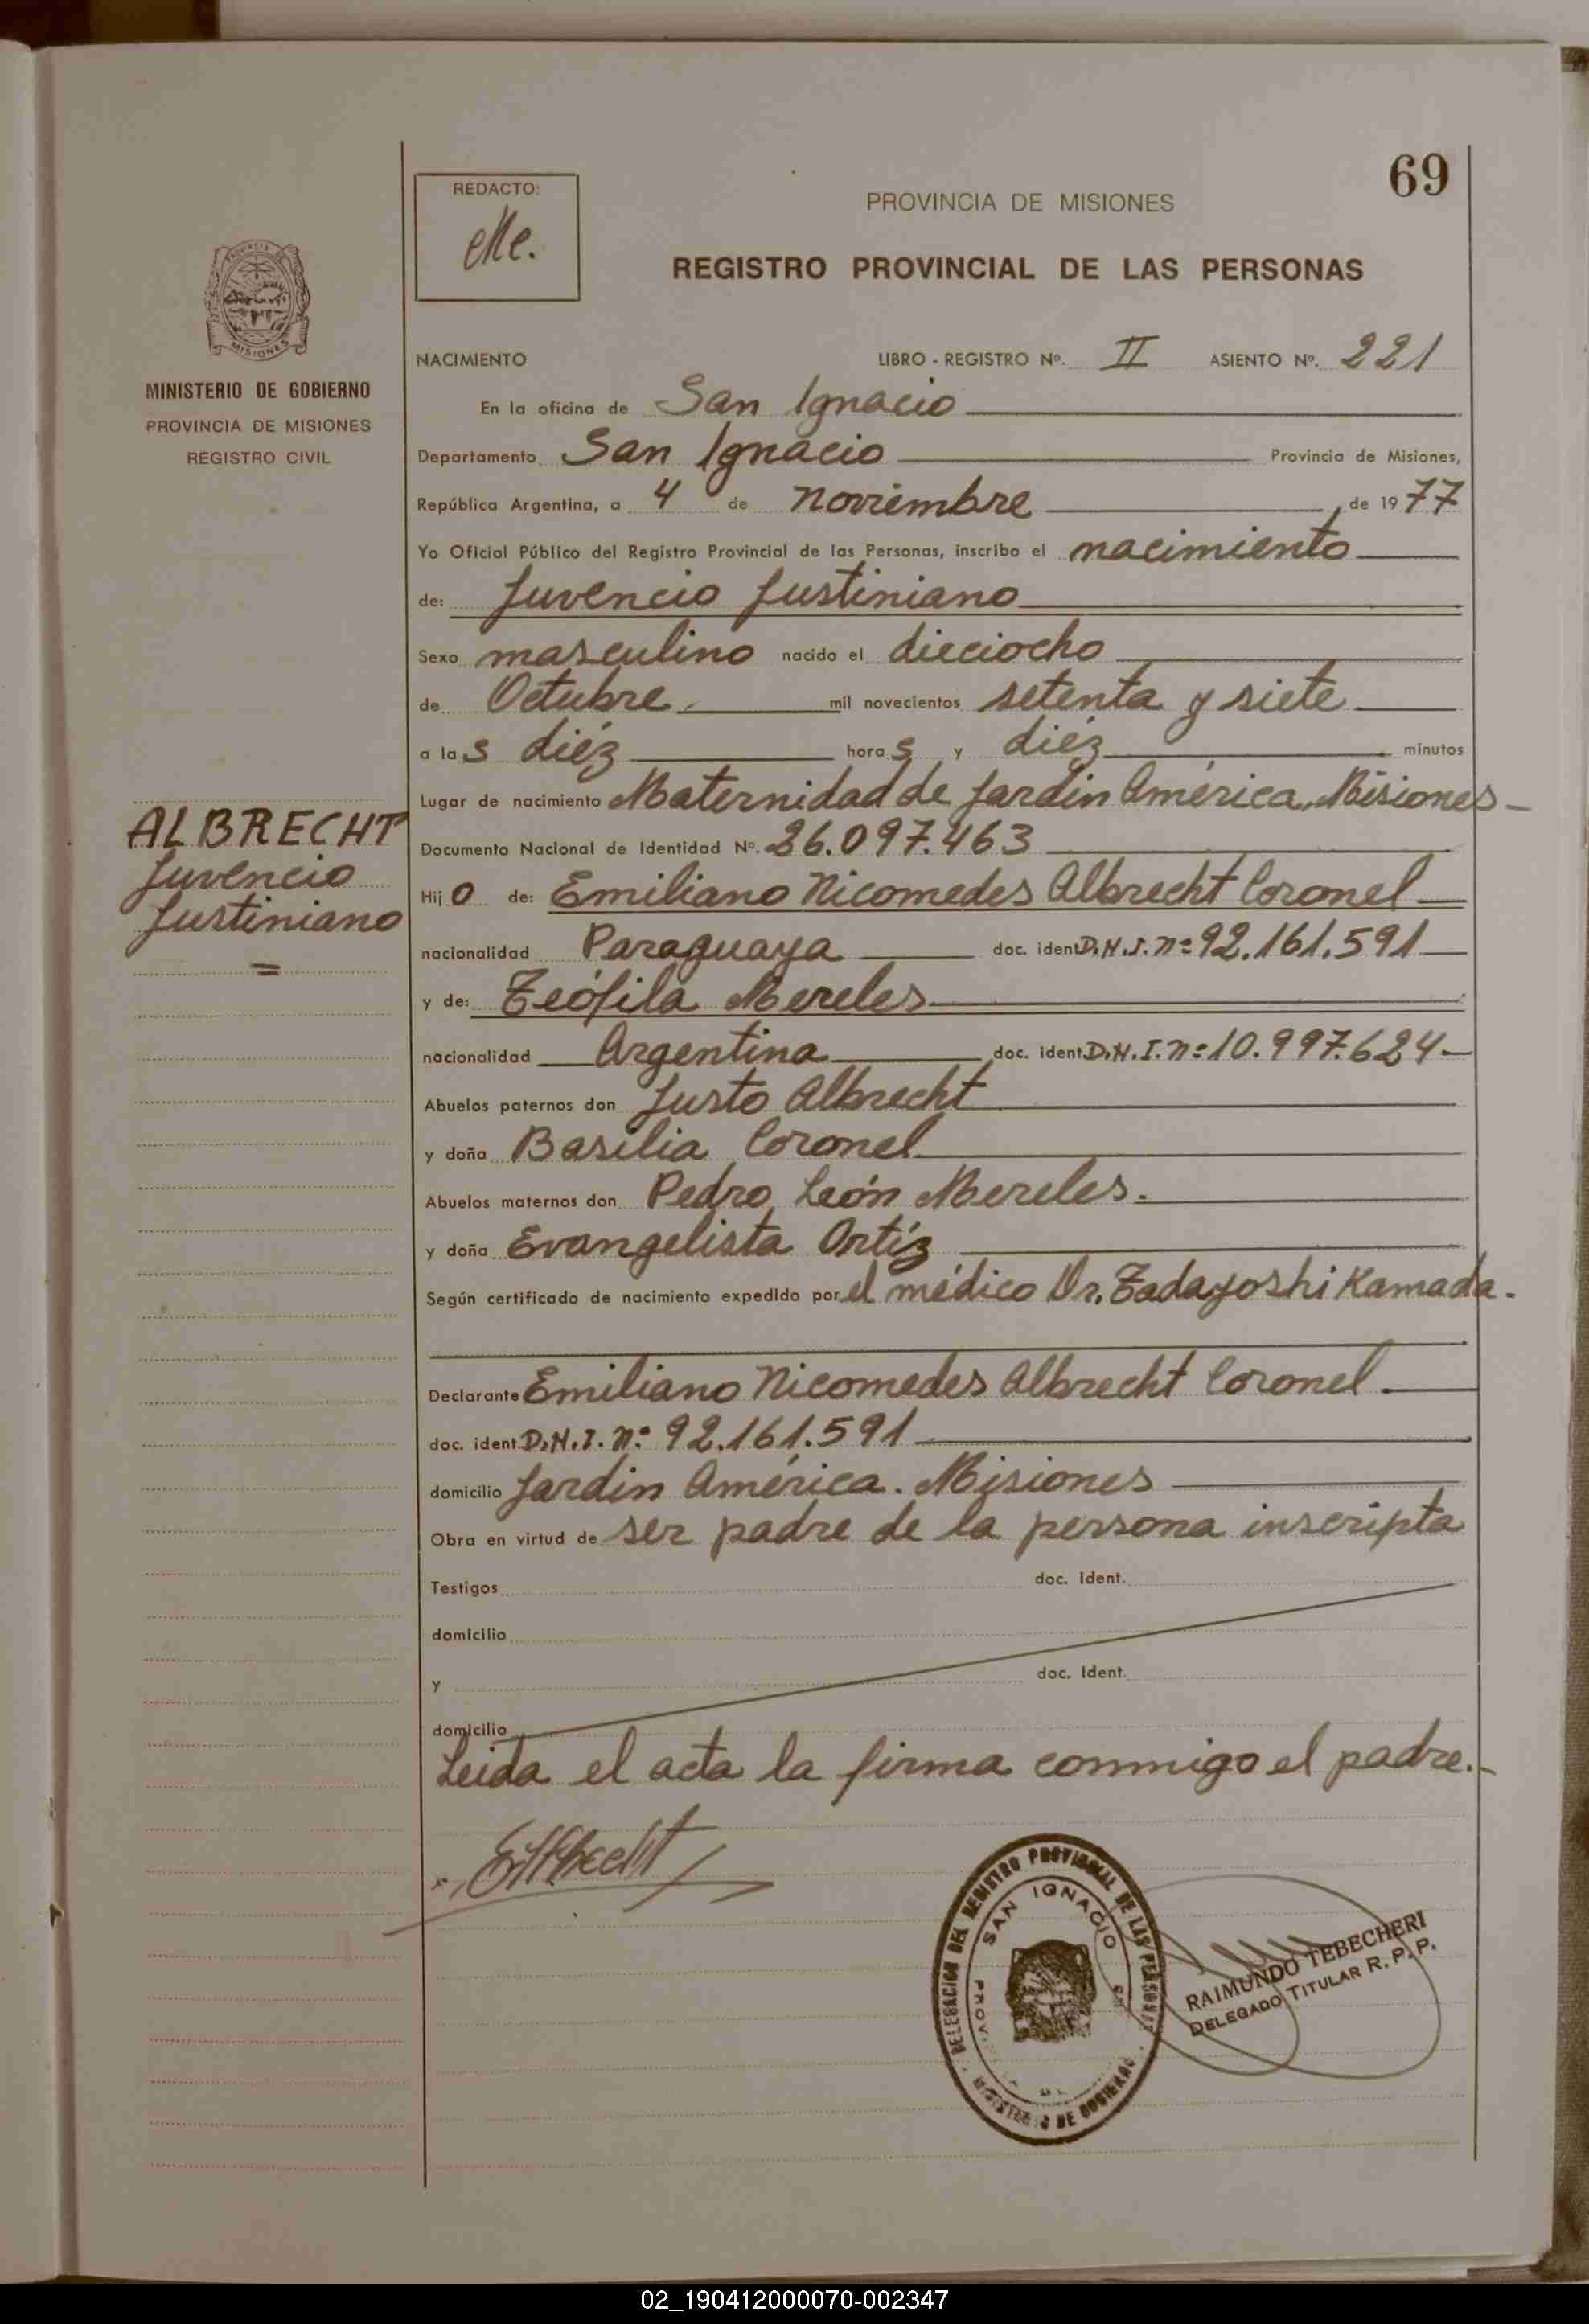 69
REDACTO:
PROVINCIA DE MISIONES
REGISTRO PROVINCIAL DE LAS PERSONAS
MISIONES
MINISTERIO DE GOBIERNO
PROVINCIA DE MISIONES
REGISTRO CIVIL
NACIMIENTO LIBRO - REGISTRO Nº. II ASIENTO Nº. 221
En la oficina de San Ignacio
Departamento San Ignacio Provincia de Misiones,
República Argentina, a 4 de noviembre de 1977
Yo Oficial Público del Registro Provincial de las Personas, inscribo el nacimiento
de: Juvencio Justiniano
Sexo masculino nacido el dieciocho
de Octubre mil novecientos setenta y siete
a las diéz horas y diéz minutos
Lugar de nacimiento Maternidad de Jardin América, Misiones
ALBRECHT
Juvencio
Justiniano
=
Documento Nacional de Identidad Nº. 26.097.463
Hijo de: Emiliano Nicomedes Albrecht Coronel
nacionalidad Paraguaya doc. ident. D.N.I. nº 92.161.591
y de: Teófila Mereles
nacionalidad Argentina doc. ident. D.N.I. nº 10.997.624
Abuelos paternos don Justo Albrecht
y doña Basilia Coronel
Abuelos maternos don Pedro León Mereles.
y doña Evangelista Ortíz
Según certificado de nacimiento expedido por el médico Dr. Tadayoshi Kamada.
Declarante Emiliano Nicomedes Albrecht Coronel
doc. ident. D.N.I. nº 92.161.591
domicilio Jardin América. Misiones
Obra en virtud de ser padre de la persona inscripta
Testigos doc. Ident.
domicilio
y doc. Ident.
domicilio
Leida el acta la firma conmigo el padre.-
DELEGACION DEL REGISTRO PROVINCIAL DE LAS PERSONAS
SAN IGNACIO
MINISTERIO DE GOBIERNO
RAIMUNDO TEBECHERI
DELEGADO TITULAR R. P. P.
02_190412000070-002347